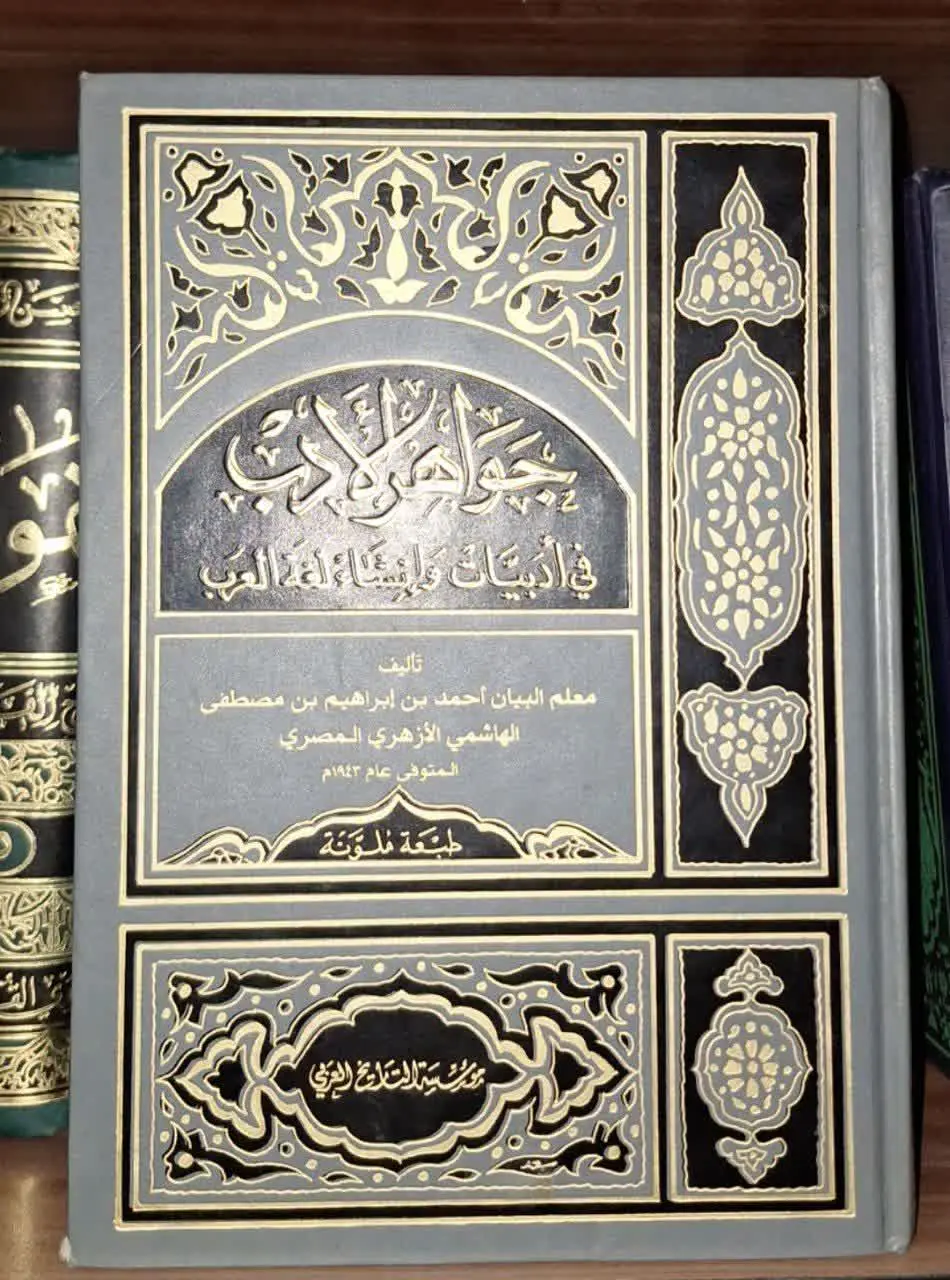 جواهر الأدب
في أدبيات وإنشاء لغة العرب
تأليف
معلم البيان أحمد بن إبراهيم بن مصطفى
الهاشمي الأزهري المصري
المتوفى عام ١٩٤٣م
طبعة ملونة
مؤسسة التاريخ العربي
سعد